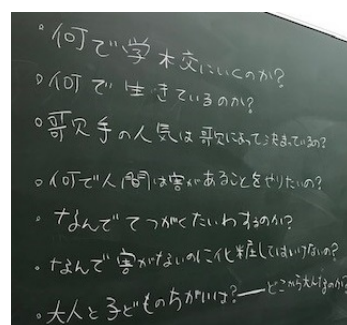 ・何で学校にいくのか?
・何で生きているのか?
・歌手の人気は歌によって決まっているの?
・何で人間は害があることをやりたいの?
・なんでてつがくたいわするのか?
・なんで害がないのに化粧してはいけないの?
・大人と子どものちがいは?ーどこから大人なのか?